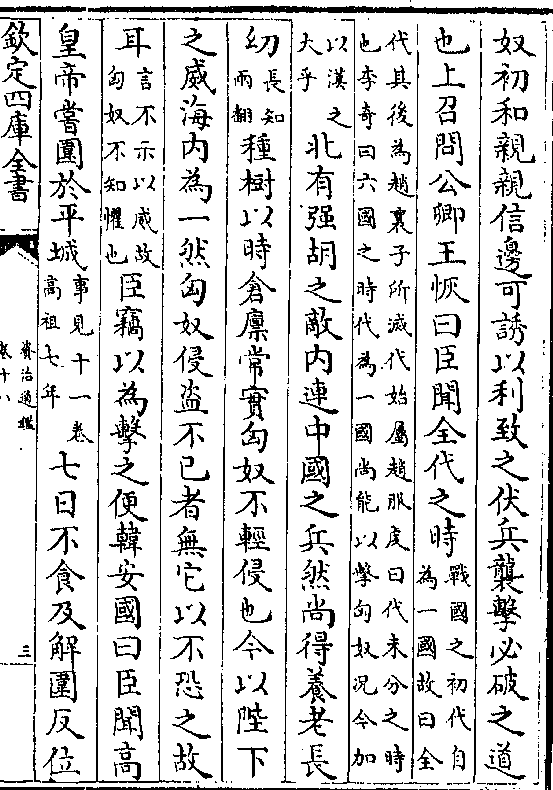 奴初和親親信邊可誘以利致之伏兵襲擊必破之道
也上召問公卿王恢曰臣聞全代之時戰國之初代自為一國故曰全
代其後為趙襄子所滅代始屬趙服虔曰代未分之時
也李奇曰六國之時代為一國尚能以擊匈奴況今加
以漢之大乎北有强胡之敵内連中國之兵然尚得養老長
幼長知兩翻種樹以時倉廪常實匈奴不輕侵也今以陛下
之威海内為一然匈奴侵盗不已者無它以不恐之故
耳言不示以威故匈奴不知懼也臣竊以為擊之便韓安國曰臣聞高
皇帝嘗圍於平城事見十一卷高祖七年七日不食及解圍反位
欽定四庫全書
資治通鑑
卷十八
三